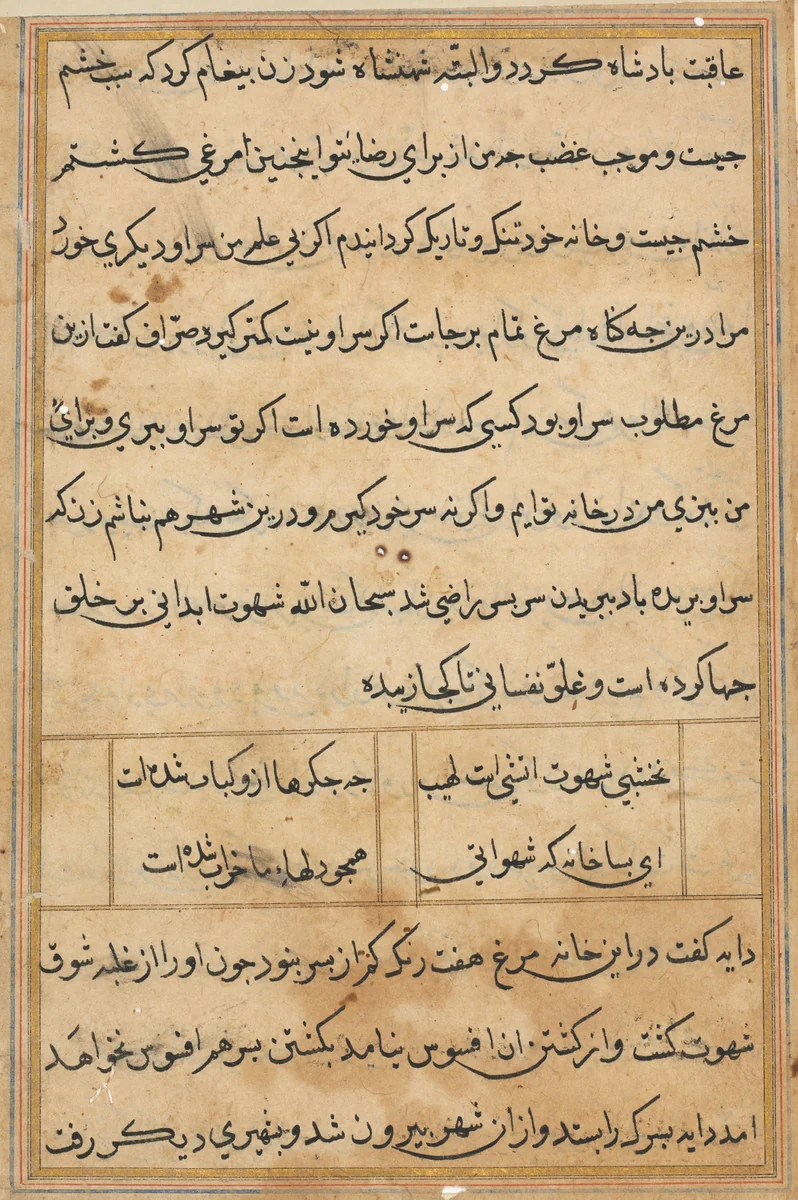 عاقبت بادشاه کردد والبتّه شهنشاه شود زن بیغام کرد که سبب خشم
جیست و موجب غضب جه من از برای رضاء تو اینجنین مرغی کشتم
خشم جیست و خانه خود تنک و تاریک کردانیدم اکر بی علم من سر او دیکری خورد
مرا درین جه کناه مرغ تمام بر جاست اکر سر او نیست کمتر کیر صرّاف کفت ازین
مرغ مطلوب سر او بود کسی که سر او خورده است اکر تو سر او ببری و برای
من ببزی من در خانه تو ایم و اکرنه سر خود کیرم و درین شهر هم نباشم زن که
سر او بریده باد ببریدن سر بسر راضی شد سبحان الله شهوت ابدانی بر خلق
جها کرده است و غلوّ نفسانی تا کجا
نخشبی شهوت اتشی است لهیب
جه جکرها ازو کباب شده است
ای بسا خانه که شهواتی
همجو دلهاء ما خراب شده است
دایه کفت در این خانه مرغ هفت رنک کم از بسر بنود جون او را از غلبه شوق
شهوت کشت و از کشتن ان افسوس نیامد بکشتن بسر هم افسوس نخواهد
امد دایه بسرک را بستد و از ان شهر بیرون شد و بشهری دیکر رفت